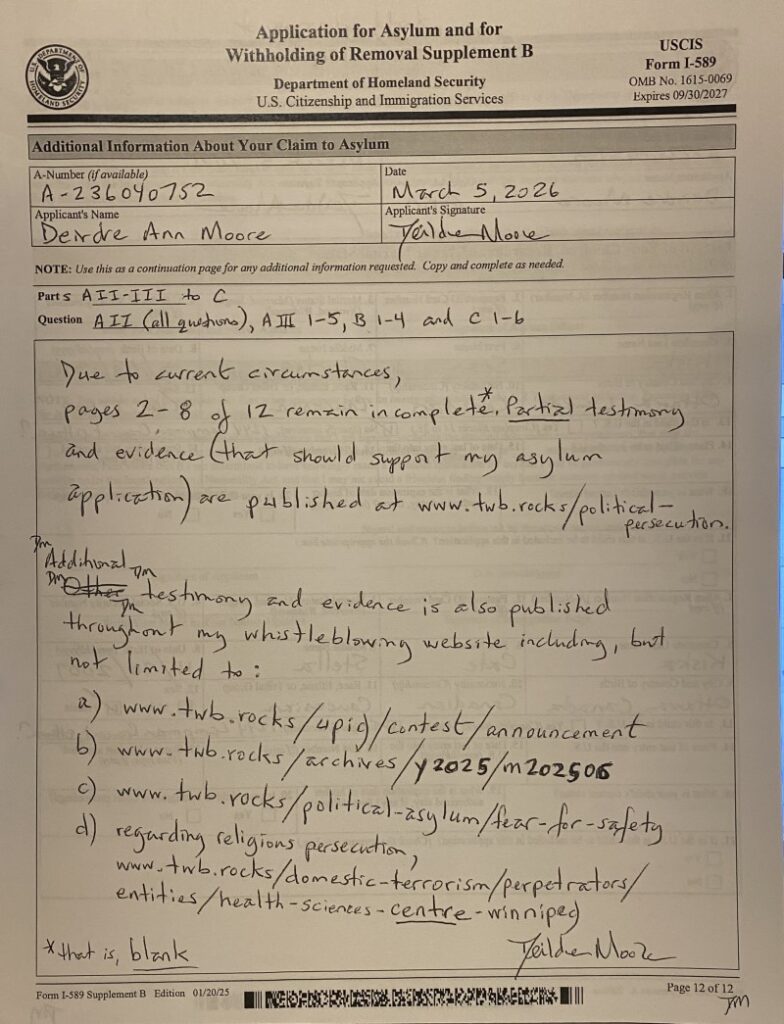 Application for Asylum and for
Withholding of Removal Supplement B
Department of Homeland Security
U.S. Citizenship and Immigration Services
USCIS
Form I-589
OMB No. 1615-0069
Expires 09/30/2027
U.S. DEPARTMENT OF HOMELAND SECURITY
Additional Information About Your Claim to Asylum
A-Number (if available)
A-236040752
Date
March 5, 2026
Applicant's Name
Deirdre Ann Moore
Applicant's Signature
Deirdre Moore
NOTE: Use this as a continuation page for any additional information requested. Copy and complete as needed.
Parts AII-III to C
Question AII (all questions), AIII 1-5, B 1-4 and C 1-6
Due to current circumstances,
pages 2-8 of 12 remain incomplete*. Partial testimony
and evidence (that should support my asylum
application) are published at www.twb.rocks/political-
persecution.
DM Additional DM
DM Other DM testimony and evidence is also published
throughout my whistleblowing website including, but
not limited to:
a) www.twb.rocks/upig/contest/announcement
b) www.twb.rocks/archives/y2025/m202506
c) www.twb.rocks/political-asylum/fear-for-safety
d) regarding religious persecution,
www.twb.rocks/domestic-terrorism/perpetrators/
entities/health-sciences-centre-winnipeg
*that is, blank
Deirdre Moore
Form I-589 Supplement B Edition 01/20/25
Page 12 of 12
DM